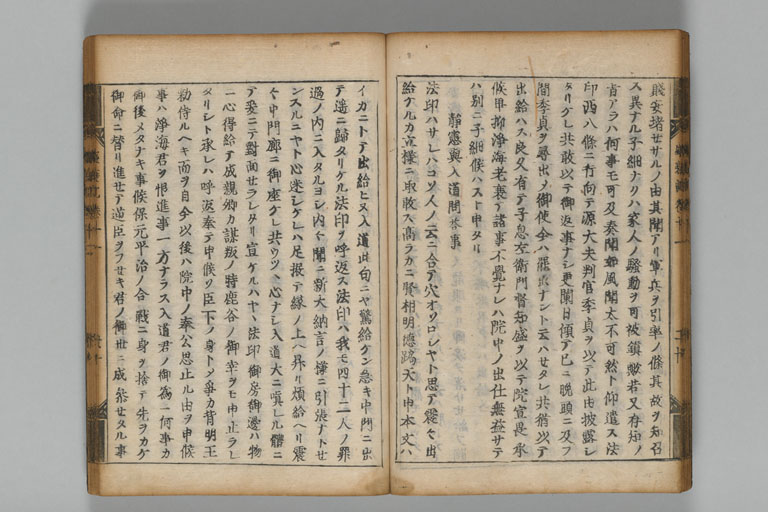 騒安堵セサルノ由其聞アリ軍兵ヲ引率ノ條其故ヲ知召
ス異ナル子細ナクハ家人ノ騒動ヲ可被鎮歟若又存知ノ
旨アラハ何事モ可及奏聞如風聞太不可然ト仰遣ス法
印西八條ニ行向テ源大夫判官季貞ヲ以テ此由披露シ
タリケレ共敢以テ御返事ナシ更闌日傾テ已ニ晩頭ニ及フ
間季貞ヲ尋出メ御使今ハ罷帰ナント云ハセタレ共猶以テ
出給ハス良又有テ子息左衛門督知盛ヲ以テ院宣畏承
候畢抑浄海老衰テ諸事不覺ナレハ院中ノ出仕無益サテ
ハ別ニ子細候ハスト申タリ
静憲與入道問荅事
法印ハサレハコソ人ノ云ニ合テ穴オソロシヤト思テ震々出
給ケルカ立様ニ取敢ス高ラカニ賢相明徳踏天ト申本文ハ
イカニトテ出給ヒヌ入道此句ニヤ驚給ケン急キ中門ニ出
テ遥ニ歸タリケル法印ヲ呼返ス法印ハ我モ四十二人ノ罪
過ノ内ニ入タルヨシ内々聞ニ新大納言ノ様ニ引張ナトせ
ンスルニヤト心迷シケレハ足振テ縁ノ上ヘ昇リ煩給ヘリ震
々中門廊ニ御座ケレ共ウツヽ心ナシ入道大ニ嗔レル髒ニ
テ爰ニテ對面せラレタリ宣ケルハヤヽ法印御房御邊ハ物
心得給テ成親卿カ謀叛ノ時鹿谷ノ御幸ヲモ申止ラレ
タリシト承レハ呼返奉テ申候ソ臣下ノ身トメ争カ背明王
勅侍ルヘキ而ヲ自今以後ハ院中ノ奉公思止ル由ヲ申候
事ハ浄海君ヲ恨進事一方ナラス入道君ノ御為ニ何事カ
御後メタナキ事候保元平治ノ合戰ニ身ヲ捨テ先ヲカケ
御命ニ替リ進せテ逆臣ヲフセキ君ノ御世ニ成參せタル事